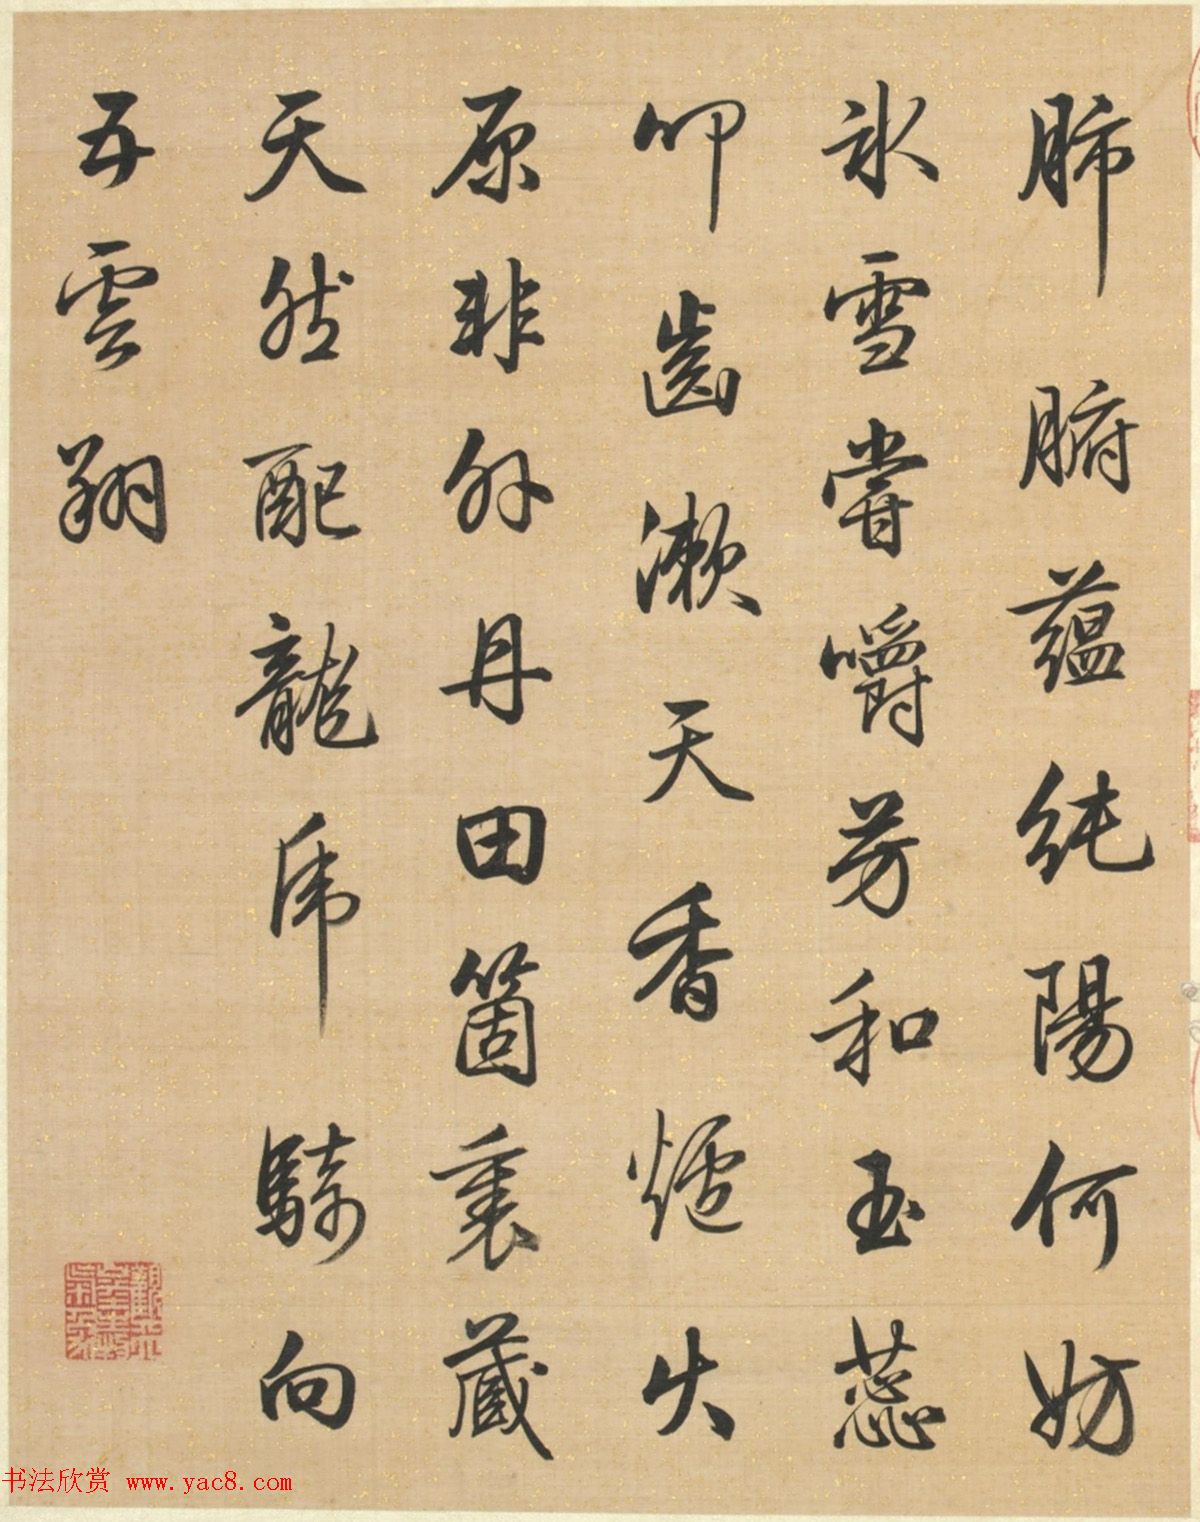 肺腑蘊純陽何妨
冰雪嘗嚼芳和玉蕊
叩齒漱天香爐火
原非外丹田箇裏藏
天然配龍虎騎向
五雲翔
书法欣赏 www.yac8.com